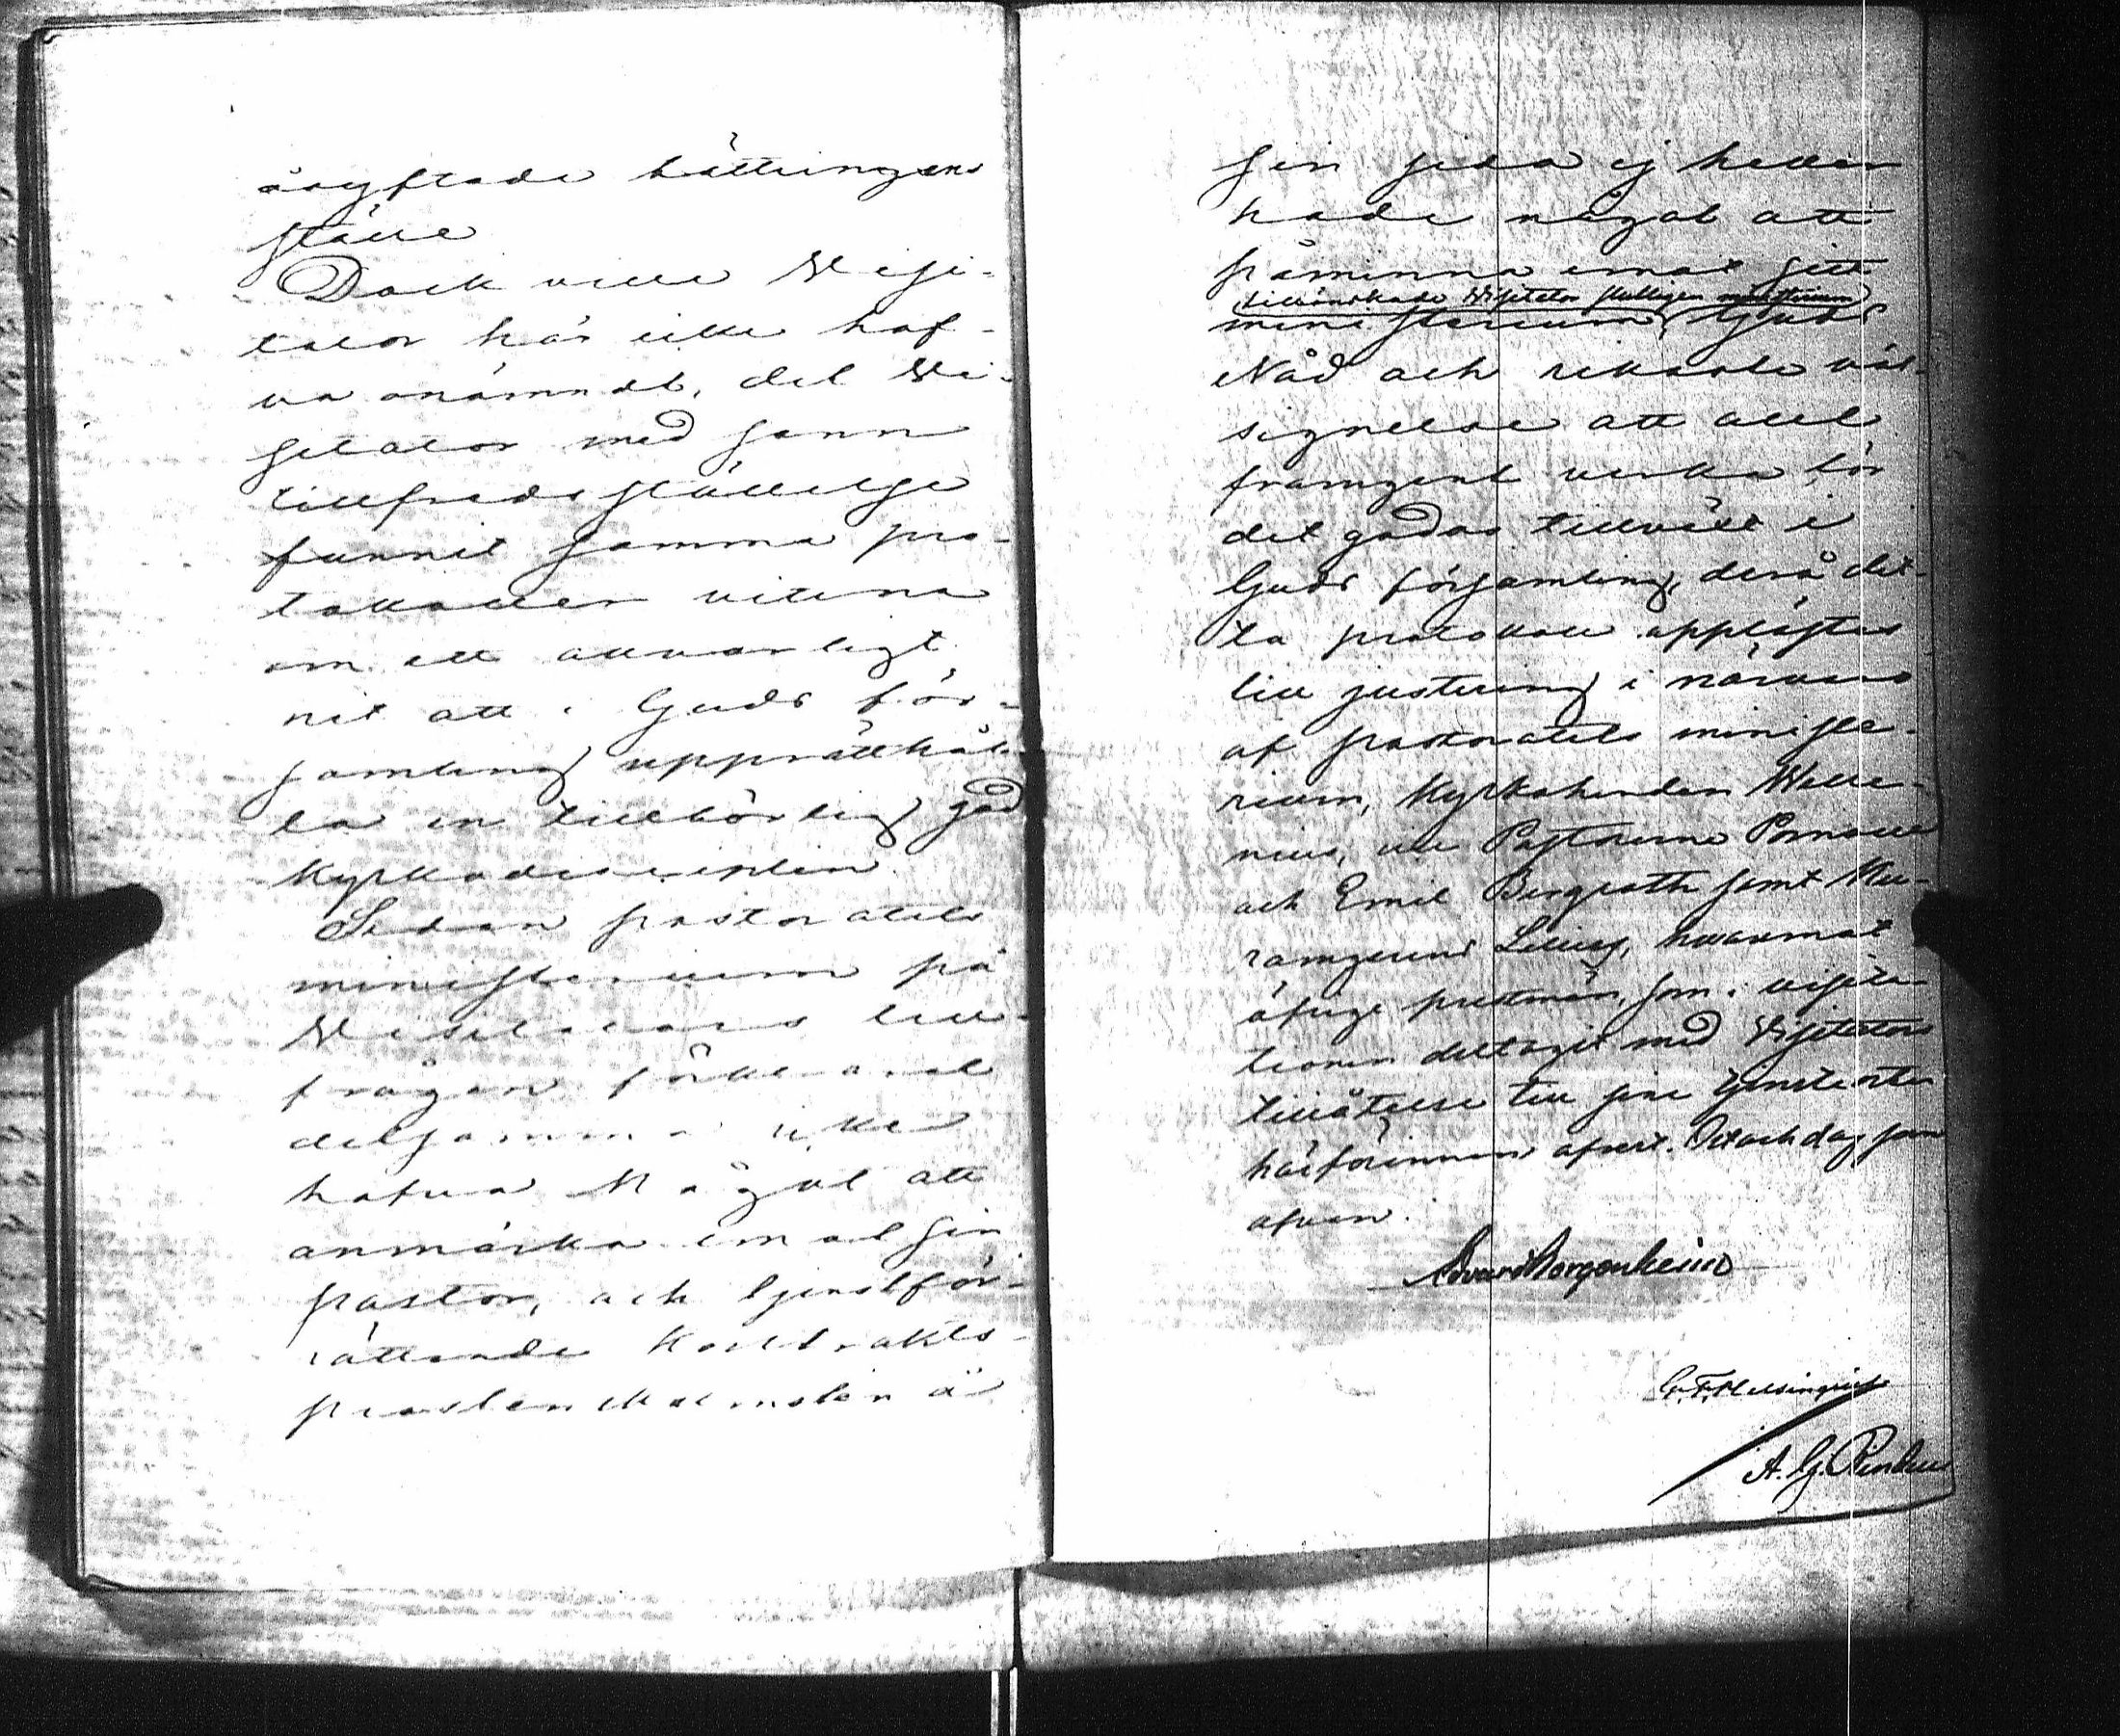 åsyftade bättringens
ställe
Dock ville Visi-
tator här icke haf-
va onämndt, det Vi-
sitator med sann
tillfredsställelse
funnit samma pro-
tokoller vittna
om ett allvarligt
nit att i Guds för-
samling upprätthål-
la en tillbörlig god
Kyrkodisciplin.
Sedan pastoratets
ministerium på
Visitators till-
frågan förklarat
detsamma icke
hafva Något att
anmärka emot sin
pastor, och tjenstför-
rättande Kontrakts-
prosten Malmsten å
sin sida ej heller
hade något att
påminna emot sitt
tillönskade Visitator slutligen
ministerium, Guds
Nåd och rikaste väl-
signelse att allt
framgent verka för
det godas tillväxt i
Guds församling, derå det-
ta protokoll upplästes
till justering i närvaro
af pastoratets ministe-
rium, Kyrkoherden Welle-
nius, vice Pastorerne
och Emil Bergroth samt
Lilius, hvarmot
öfrige prestmän, som i visita-
tionen deltagit med Visitators
tillåtelse till sina tjensteorter
härförinnan afrest. Ort och dag som
ofvan.
G. F. Helsingius
A. G.